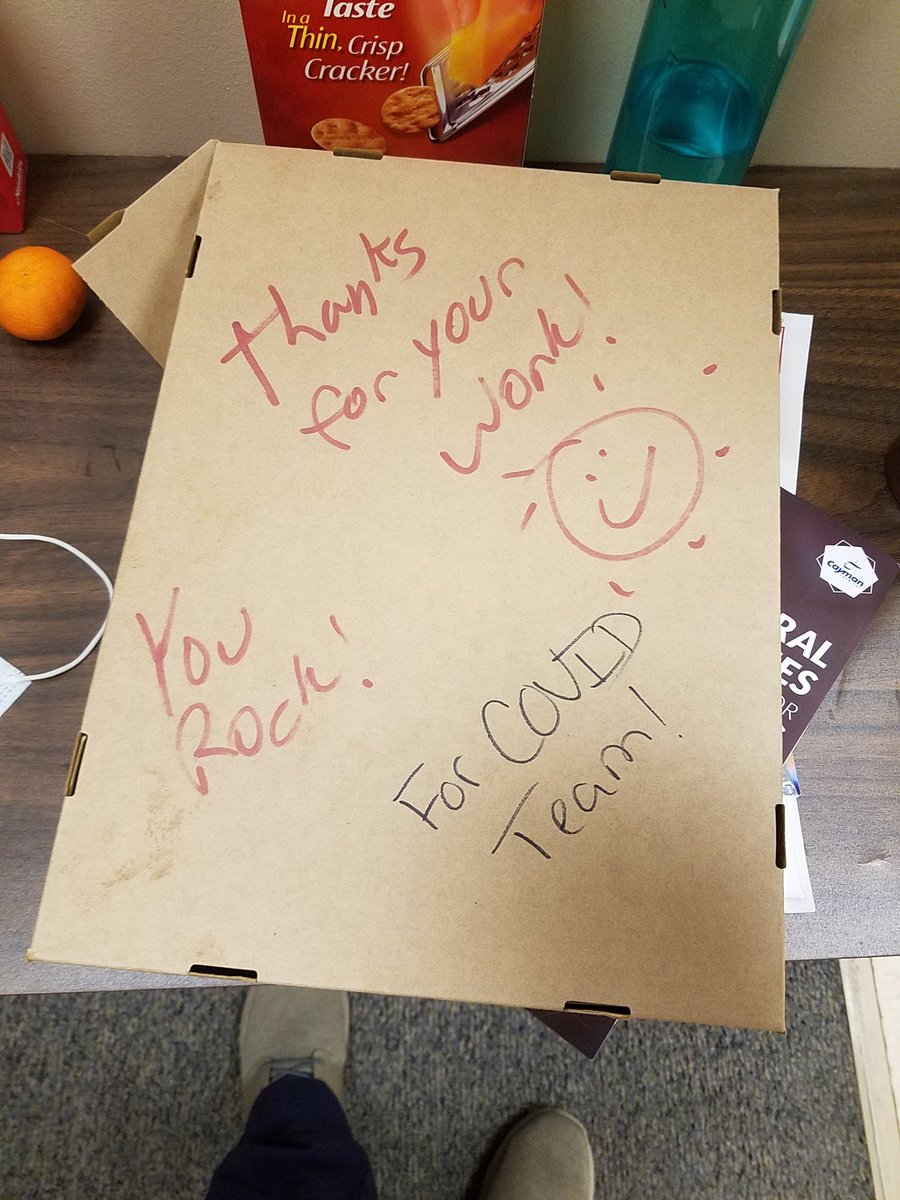 Taste
In a
Thin, Crisp
Cracker!
thanks
for your
work!
You
Rock!
For COVID
Team!
cayman
RAL
ES
OR